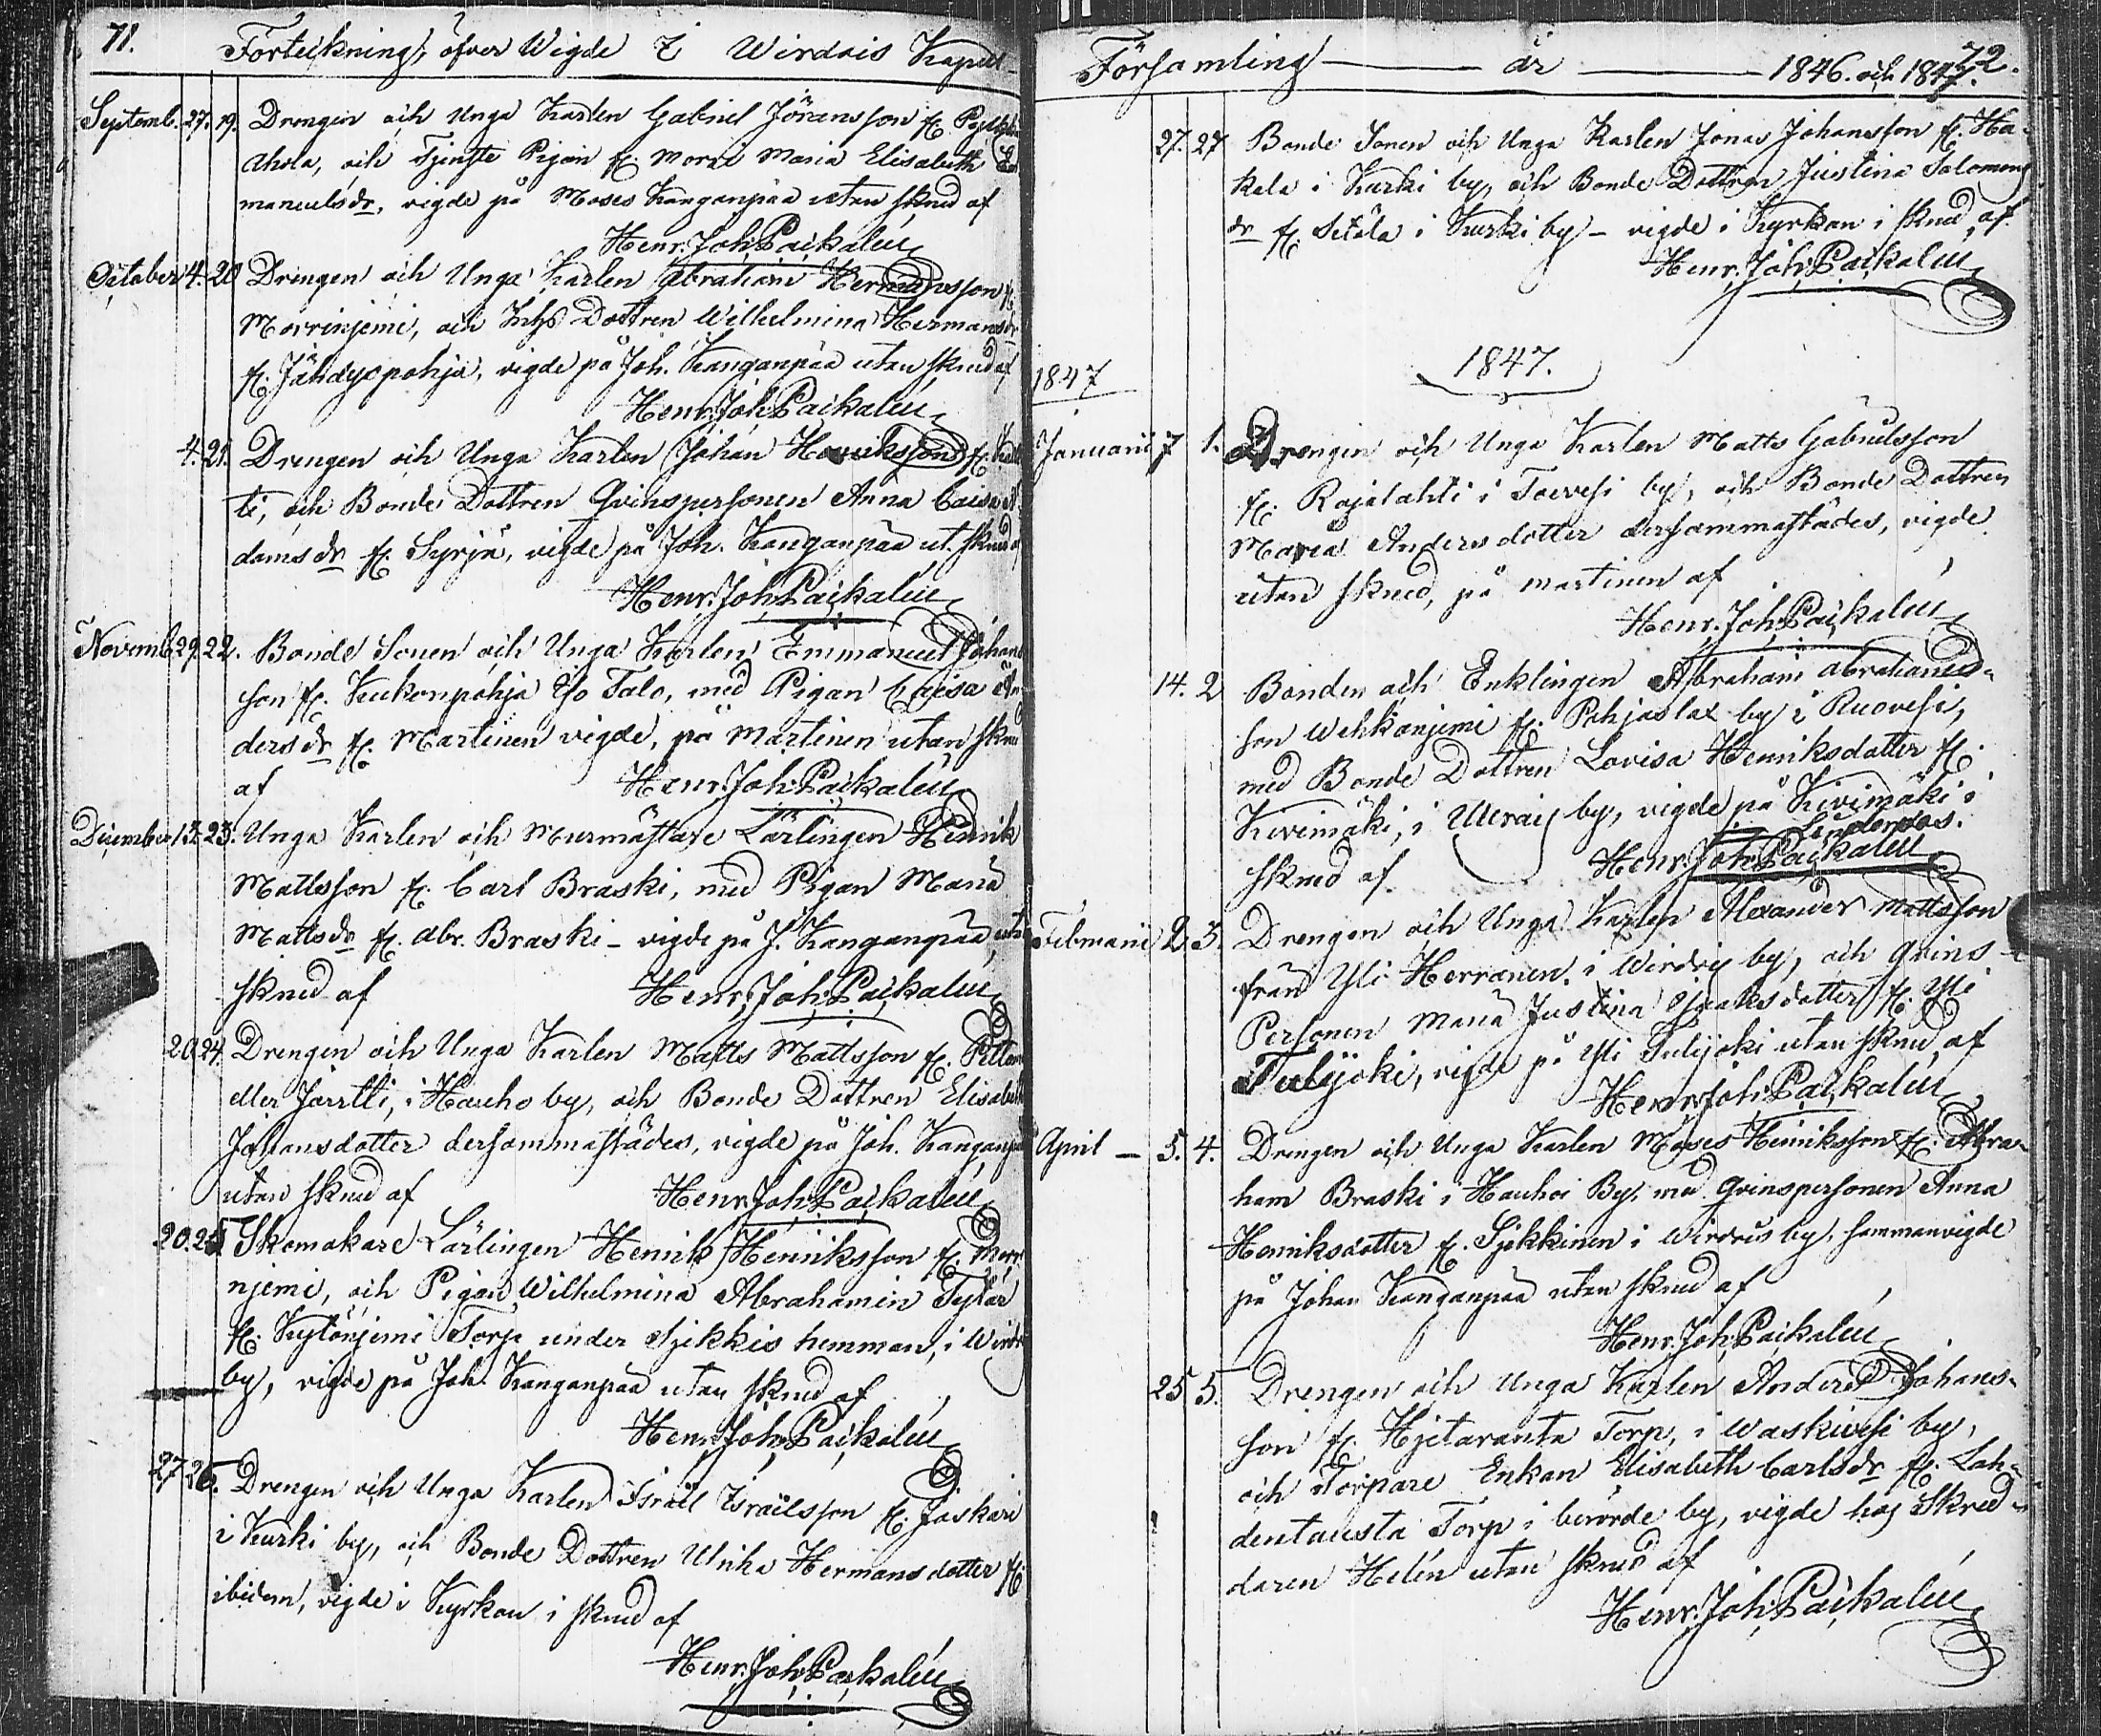 71. Förteckning öfver Wigde i Wirdois Kapell
Septemb. 27. 19. Drengen och Unga Karlen Gabriel Jöransson fr.
ahola, och Tjenste Pigan fr. Morri Maria Elisabeth
manuelsdr, vigde på Moses Kanganpää utan skrud af
Henr. Joh. Paikalén
October 4. 20 Drengen och Unga Karlen Abraham Hermansson fr.
Morrinjemi, och Dottren Wilhelmina Hermansdr
fr. Jähdyspohja, vigde på Joh. Kanganpää utan skrud af
Henr. Joh. Paikalén
4. 21. Drengen och Unga Karlen Johan Henriksson fr.
ti, och Bonde Dottren Qvinspersonen Anna Caisa A
damsdr fr. Syrjä, vigde på Joh. Kanganpää ut. skrud af
Henr. Joh. Paikalén
Novemb. 29. 22. Bonde Sonen och Unga Karlen Emmanuel Johans
son fr. Kukonpohja Yso Talo, med Pigan Caisa An
dersdr fr. Martinen vigde, på Martinen utan skrud
af Henr. Joh. Paikalén
December 13. 23. Unga Karlen och Murmästare Lärlingen Henrik
Mattsson fr. Carl Braski, med Pigan Maria
Mattsdr fr. Abr. Braski – vigde på J. Kanganpää, utan
skrud af Henr. Joh. Paikalén
20. 24. Drengen och Unga Karlen Matts Mattsson fr.
eller Järrtti, i Hauho by, och Bonde Dottren Elisabeth
Johansdotter dersammastädes, vigde på Joh. Kanganpää
utan skrud af Henr. Joh. Paikalén
20. 25. Skomakare Lärlingen Henrik Henriksson fr. Morri
njemi, och Pigan Wilhelmina Abrahamin Tytär
fr. Kytönjemi Torp under Sjekkis hemman, i Wirdois
by, vigde på Joh. Kanganpää utan skrud af
Henr. Joh. Paikalén
27. 26. Drengen och Unga Karlen Israël Israëlsson fr. Jäskäri
i Kurki by, och Bonde Dottren Ulrika Hermansdotter fr.
ibidem, vigde i Kyrkan i skrud af
Henr. Joh. Paikalén
72.
Församling år 1846. och 1847.
27. 27 Bonde Sonen och Unga Karlen Jonas Johansson fr. Ha-
kala i Kurki by, och Bonde Dottren Justina Salomons
dr fr. Setälä i Kurki by – vigde i Kyrkan i skrud, af
Henr. Joh. Paikalén
1847.
1847
Januarii 7 1. Drengen och Unga Karlen Matts Gabrielsson
fr. Rajalahti i Toevesi by, och Bonde Dottren
Maria Andersdotter dersammastädes, vigde
utan skrud, på Martinen af
Henr. Joh. Paikalén
14. 2 Bonden och Enklingen Abraham Abrahams-
son Wehkanjemi fr. Pohjaslax by i Ruovesi,
med Bonde Dottren Lovisa Henriksdotter fr.
Kivimäki, i by, vigde på Kivimäki i
skrud af Henr. Joh. Paikalén
Februarii 2 3. Drengen och Unga Karlen Alexander Mattsson
från Yli Herranen i Wirdois by, och Qvins-
Personen Maria Justina Isaaksdotter fr. Yli
Tulijoki, vigde på Yli Tulijoki utan skrud, af
Henr. Joh. Paikalén
April – 5. 4. Drengen och Unga Karlen Moses Henriksson fr. Abra-
ham Braski i Hauhoi By, med Qvinspersonen Anna
Henriksdotter fr. Sjekkinen i Wirdois by, sammanvigde
på Johan Kanganpää utan skrud af
Henr. Joh. Paikalén
25 5. Drengen och Unga Karlen Anders Johans-
son fr. Hjetaranta Torp, i Waskivesi by,
och Torpare Enkan Elisabeth Carlsdr fr. Lah-
dentausta Torp i berörde by, vigde hos Skred-
daren Helén utan skrud af
Henr. Joh. Paikalén